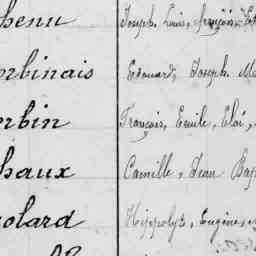 henu Joseph, Louis, François, 
orbinais Edouard, Joseph. M
orbin François, Emile, Eloi,
haux Camille, Jean Bap
olard Hippolyte, Eugène,